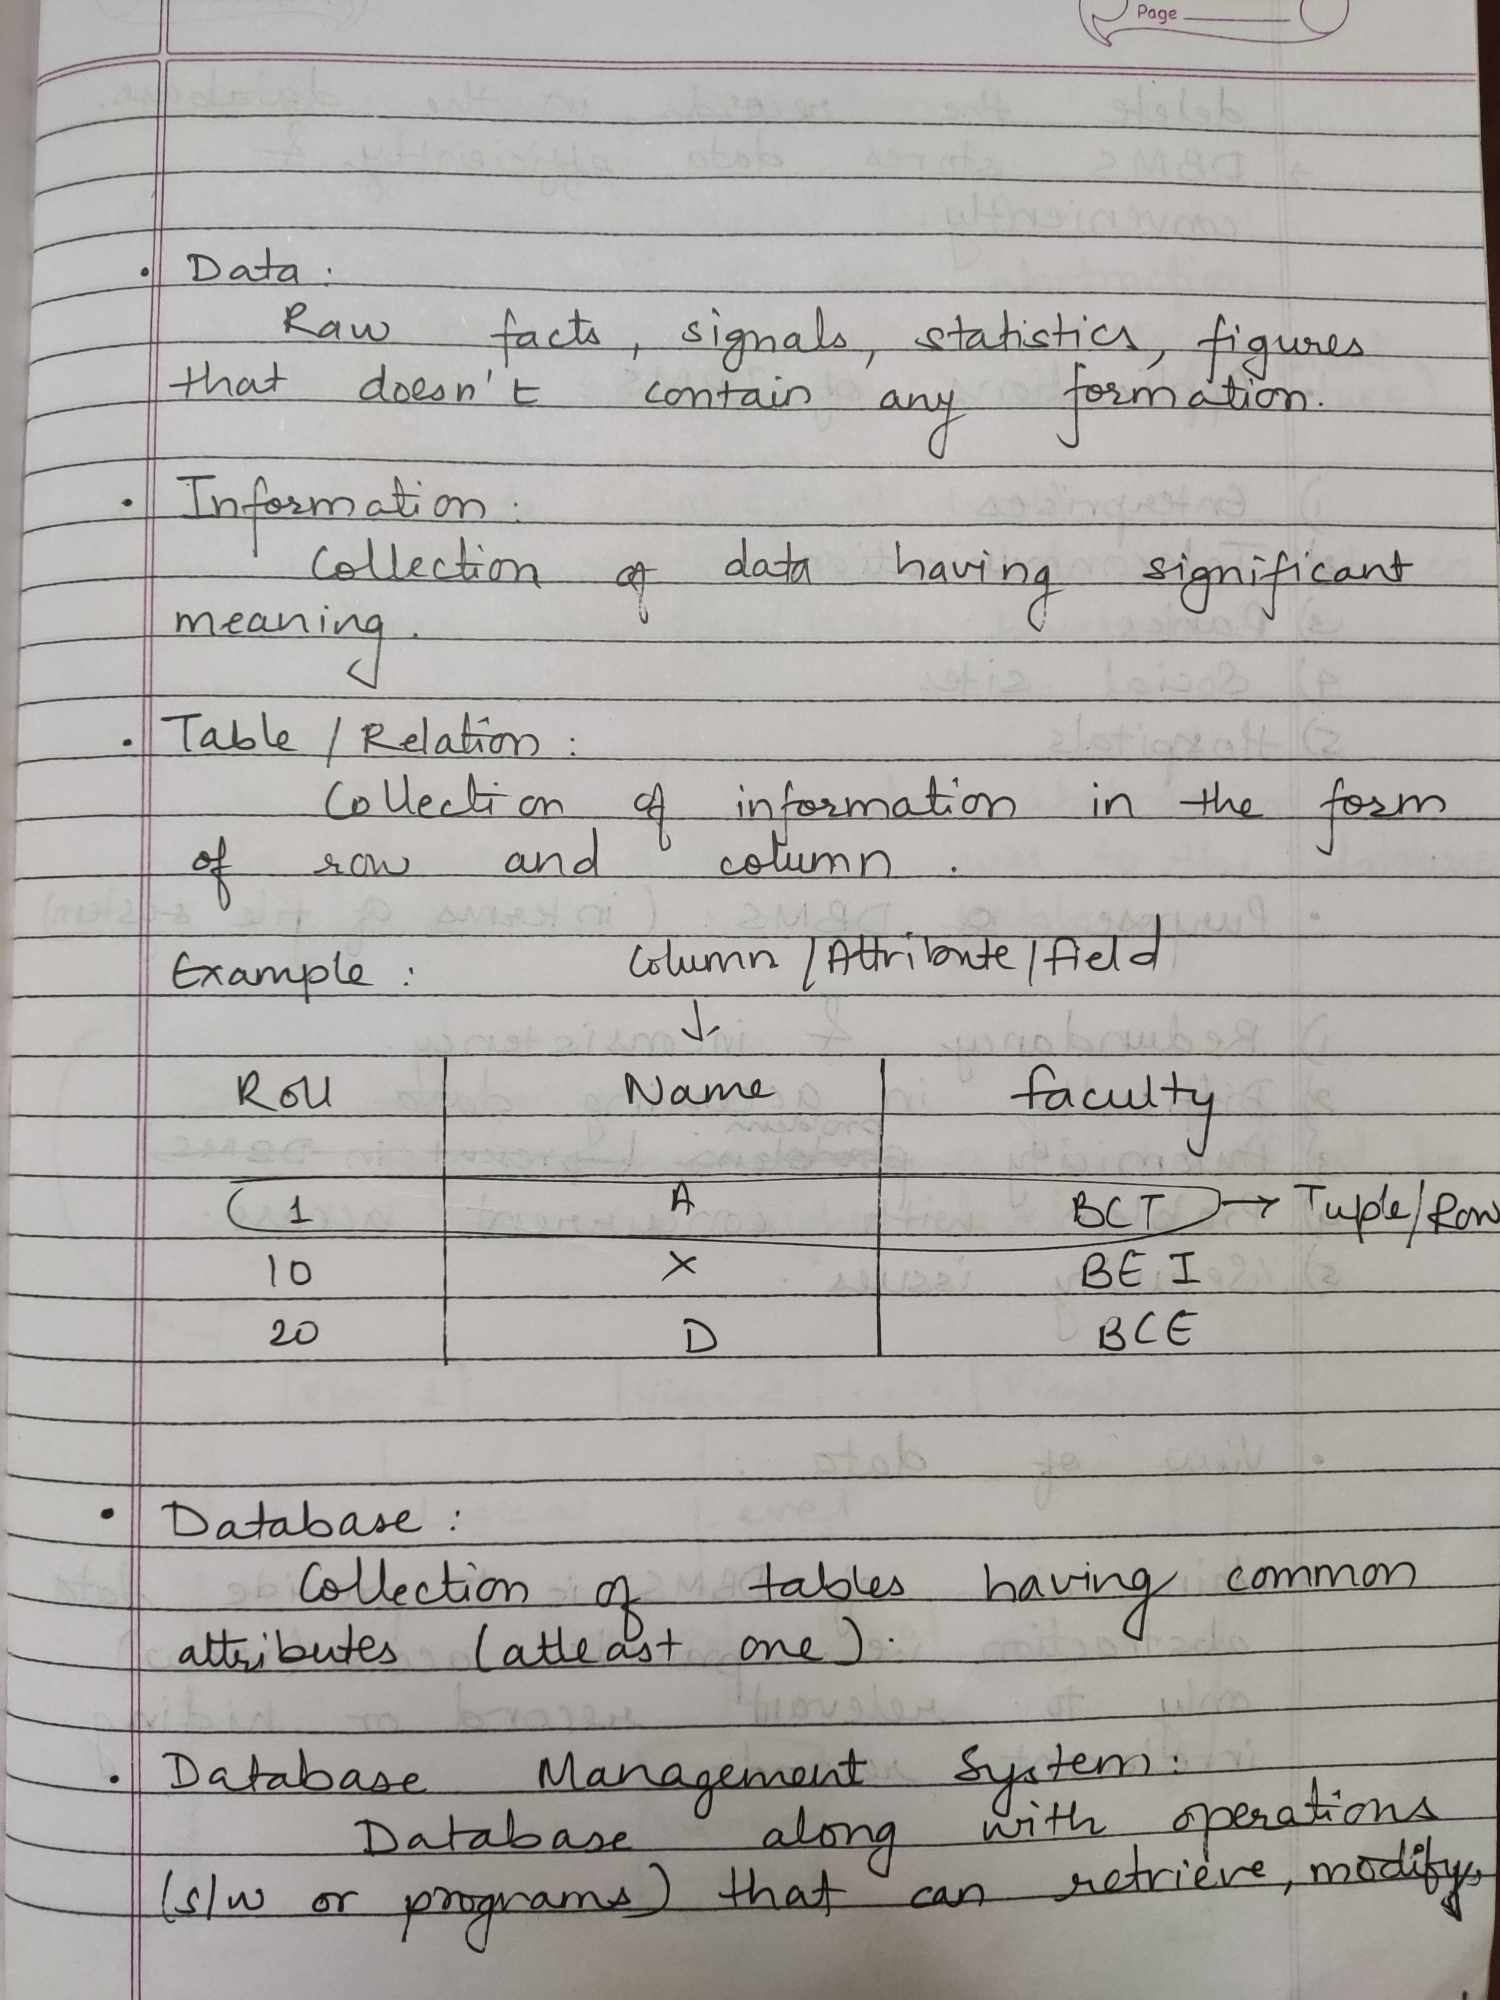 Page
• Data :
Raw facts, signals, statistics, figures
that doesn't contain any formation.
• Information :
Collection of data having significant
meaning.
• Table / Relation :
Collection of information in the form
of row and column .
Example : Column / Attribute / field
↓
Roll Name faculty
1 A BCT → Tuple/Row
10 X BEI
20 D BCE
• Database :
Collection of tables having common
attributes (atleast one).
• Database Management System :
Database along with operations
(s/w or programs) that can retrieve, modify,